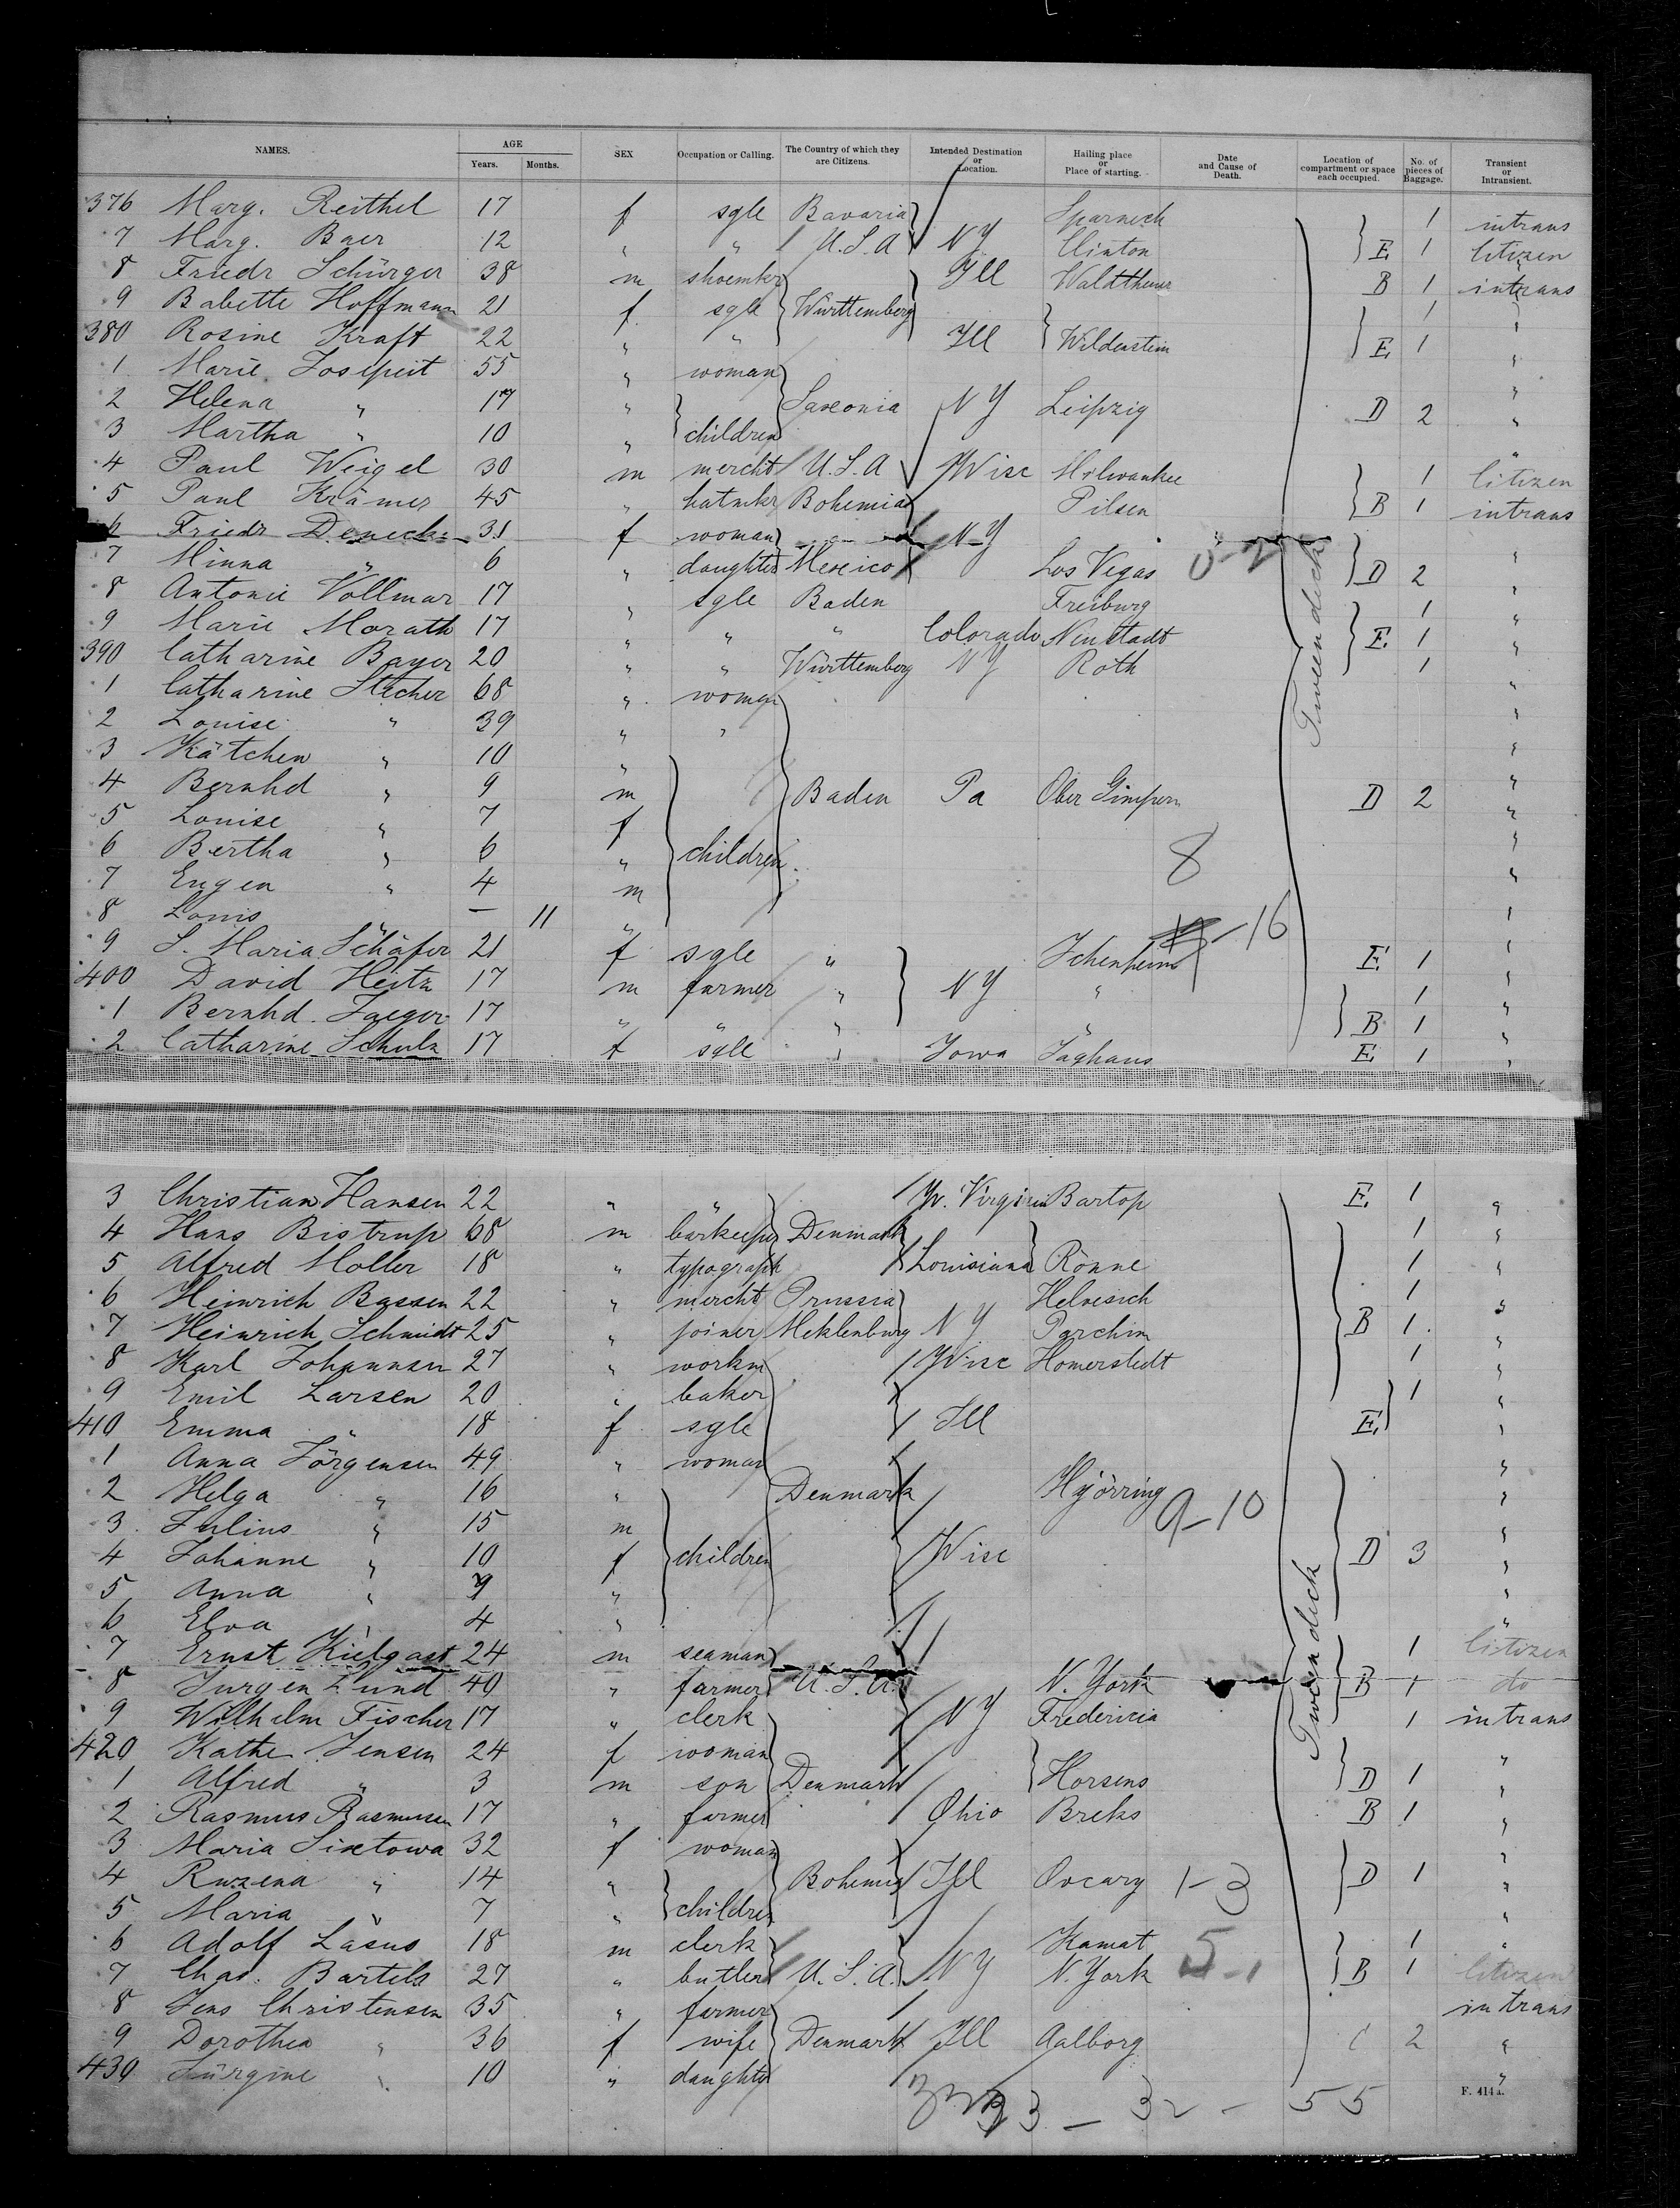 NAMES. AGE Years. Months. SEX Occupation or Calling. The Country of which they are Citizens. Intended Destination or Location. Hailing place or Place of starting. Date and Cause of Death. Location of compartment or space each occupied. No. of pieces of Baggage. Transient or Intransient.
376 Marg. Reithel 17 f sgle Bavaria Sparneck 1 intrans
7 Marg. Baer 12 " " U.S.A NY Clinton E 1 citizen
8 Friedr Schürger 38 m shoemkr Ill B 1 intrans
9 Babette Hoffmann 21 f sgle Württemberg 1 "
380 Rosine Kraft 22 " " Ill Wildenstein E 1 "
1 Marie 55 " woman "
2 Helena " 17 " Saxonia NY Leipzig D 2 "
3 Martha " 10 " children "
4 Paul Weigel 30 m mercht U.S.A Wisc Milwaukee 1 citizen
5 Paul Krämer 45 " hatmkr Bohemia Pilsen B 1 intrans
6 Friedr 31 f woman NY "
7 Minna " 6 " daughter Mexico Los Vegas 0-2 D 2 "
8 Antonie Vollmar 17 " sgle Baden Freiburg 1 "
9 Marie Morath 17 " " " Colorado Neustadt E 1 "
390 Catharine Bayer 20 " " Württemberg NY Roth 1 "
1 Catharine Stecher 68 " woman "
2 Louise " 39 " " "
3 Kätchen " 10 " "
4 Bernhd " 9 m Baden Pa Ober Gimpern D 2 "
5 Louise " 7 f "
6 Bertha " 6 " children "
7 Eugen " 4 m 8 "
8 Louis " — 11 " "
9 S. Maria Schäfer 21 f sgle " Ichenheim -16 E 1 "
400 David Heitz 17 m farmer " NY " 1 "
1 Bernhd. Jaeger 17 " " " " B 1 "
2 Catharine Schulz 17 f sgle " Iowa Jaghaus E 1 "
Tweendeck
3 Christian Hansen 22 " " W. Virginia Bartop E 1 "
4 Hans Bistrup 68 m barkeeper Denmark 1 "
5 Alfred Moller 18 " typograph Louisiana Rönne 1 "
6 Heinrich Bassen 22 " mercht Prussia 1 "
7 Heinrich Schmidt 25 " joiner Meklenburg NY Parchim B 1 "
8 Karl Johannsen 27 " workm Wisc Homerstedt 1 "
9 Emil Larsen 20 " baker 1 "
410 Emma " 18 f sgle Ill E "
1 Anna Jörgensen 49 " woman "
2 Helga " 16 " Denmark Hjörring 9-10 "
3 Julius " 15 m "
4 Johanne " 10 f children Wisc D 3 "
5 Anna " 9 " "
6 Elva " 4 " "
7 Ernst Kielgast 24 m seaman 1 citizen
8 Jurgen Lund 40 " farmer U.S.A. N. York B 1 do
9 Wilhelm Fischer 17 " clerk NY Fredericia 1 intrans
420 Kathe Jensen 24 f woman "
1 Alfred " 3 m son Denmark Horsens D 1 "
2 Rasmus Rasmusen 17 " farmer Ohio Breks B 1 "
3 Maria Sixtowa 32 f woman "
4 Ruzena " 14 " Bohemia Ill Ovcary 1-3 D 1 "
5 Maria " 7 " children "
6 Adolf Lasus 18 m clerk Kamat 1 "
7 Chas. Bartels 27 " butler U.S.A. NY N. York 5-1 B 1 citizen
8 Jens Christensen 35 " farmer intrans
9 Dorothea " 36 f wife Denmark Ill Aalborg C 2 "
430 Jürgine " 10 " daughter "
Tweendeck
33 - 32 - 55
F. 414a.